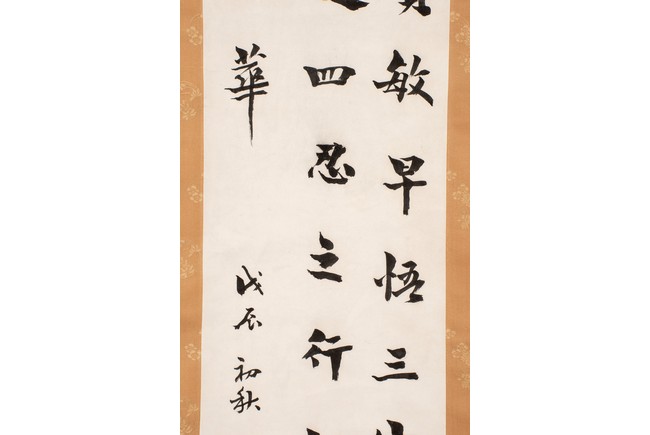 敏早悟三
四忍之行
華 戊辰初秋